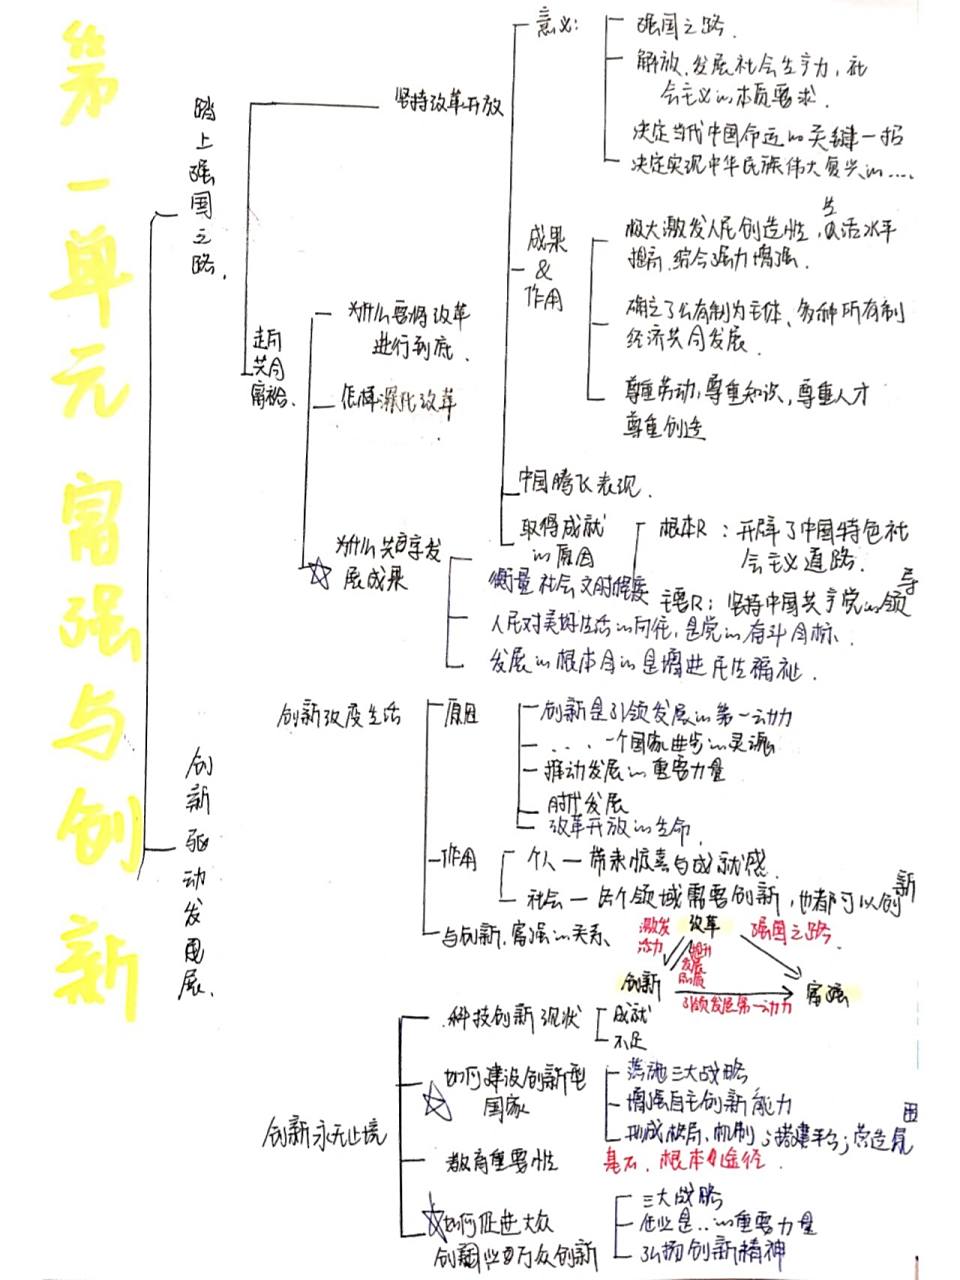 第一单元 富强与创新
踏上强国之路.
坚持改革开放
意义:
强国之路.
解放.发展社会生产力,社
会主义的本质要求.
决定当代中国命运的关键一招
决定实现中华民族伟大复兴的....
成果
&
作用
极大激发人民创造性,生活水平
提高.综合国力增强.
确立了公有制为主体、多种所有制
经济共同发展.
尊重劳动,尊重知识,尊重人才
尊重创造
中国腾飞表现.
取得成就
的原因
根本R:开辟了中国特色社
会主义道路.
主要R:坚持中国共产党的领导
走向
共同
富裕.
为什么要将改革
进行到底.
怎样深化改革
为什么共享发
展成果
衡量社会文明程度
人民对美好生活的向往,是党的奋斗目标.
发展的根本目的是增进民生福祉.
创新驱动发展.
创新改变生活
原因
创新是引领发展的第一动力
....一个国家进步的灵魂
推动发展的重要力量
时代发展
改革开放的生命
作用
个人—带来惊喜与成就感.
社会—各个领域需要创新,也都可以创新
与创新.富强的关系.
激发
活力
改革
强国之路.
提升
发展
品质
创新
富强
引领发展第一动力
创新永无止境
科技创新现状
成就
不足
如何建设创新型
国家
落地三大战略
增强自主创新能力
形成格局.机制;搭建平台;营造氛围
教育重要性
基石.根本途径.
如何促进大众
创业万众创新
三大战略
企业是..的重要力量
弘扬创新精神